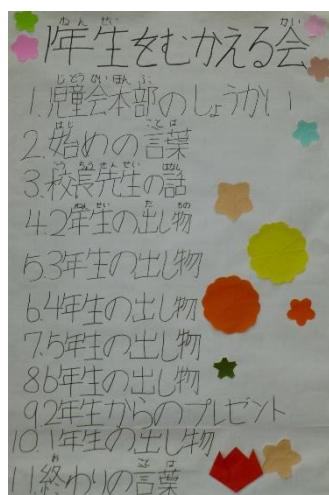 1年生をむかえる会
1.児童会本部のしょうかい
2.始めの言葉
3.校長先生の話
4.2年生の出し物
5.3年生の出し物
6.4年生の出し物
7.5年生の出し物
8.6年生の出し物
9.2年生からのプレゼント
10.1年生の出し物
11.終わりの言葉